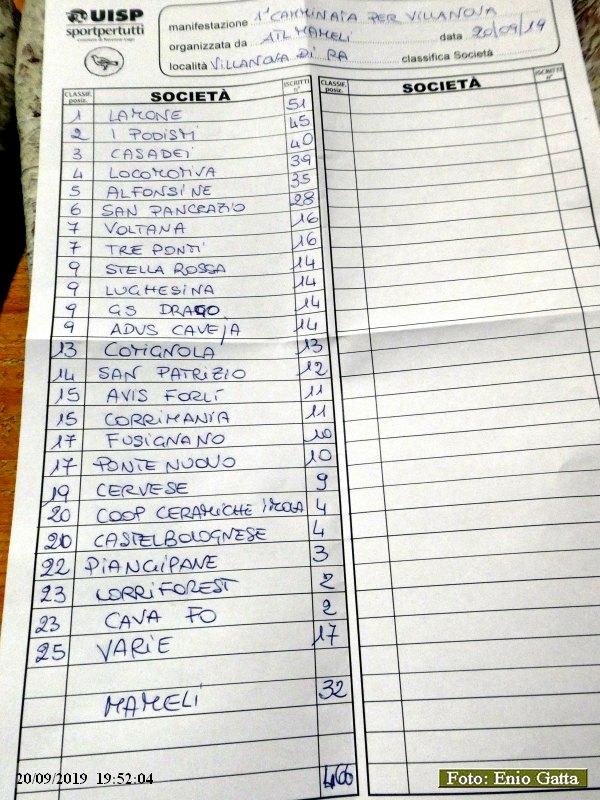 UISP
sportpertutti
manifestazione 1ª CAMMINATA PER VILLANOVA
organizzata da ATL MAMELI data 20/09/19
località VILLANOVA DI RA classifica Società
CLASSIF. posiz. SOCIETÀ ISCRITTI n° CLASSIF. posiz. SOCIETÀ ISCRITTI n°
1 LAMONE 51
2 I PODISTI 45
3 CASADEI 40
4 LOCOMOTIVA 39
5 ALFONSINE 35
6 SAN PANCRAZIO 28
7 VOLTANA 16
7 TRE PONTI 16
9 STELLA ROSSA 14
9 LUGHESINA 14
9 GS DRAGO 14
9 ADVS CAVEJA 14
13 COTIGNOLA 13
14 SAN PATRIZIO 12
15 AVIS FORLÍ 11
15 CORRIMANIA 11
17 FUSIGNANO 10
17 PONTE NUOVO 10
19 CERVESE 9
20 COOP CERAMICHE IMOLA 4
20 CASTELBOLOGNESE 4
22 PIANGIPANE 3
23 CORRIFOREST 2
23 CAVA FO 2
25 VARIE 17
MAMELI 32
466
20/09/2019 19:52:04
Foto: Enio Gatta